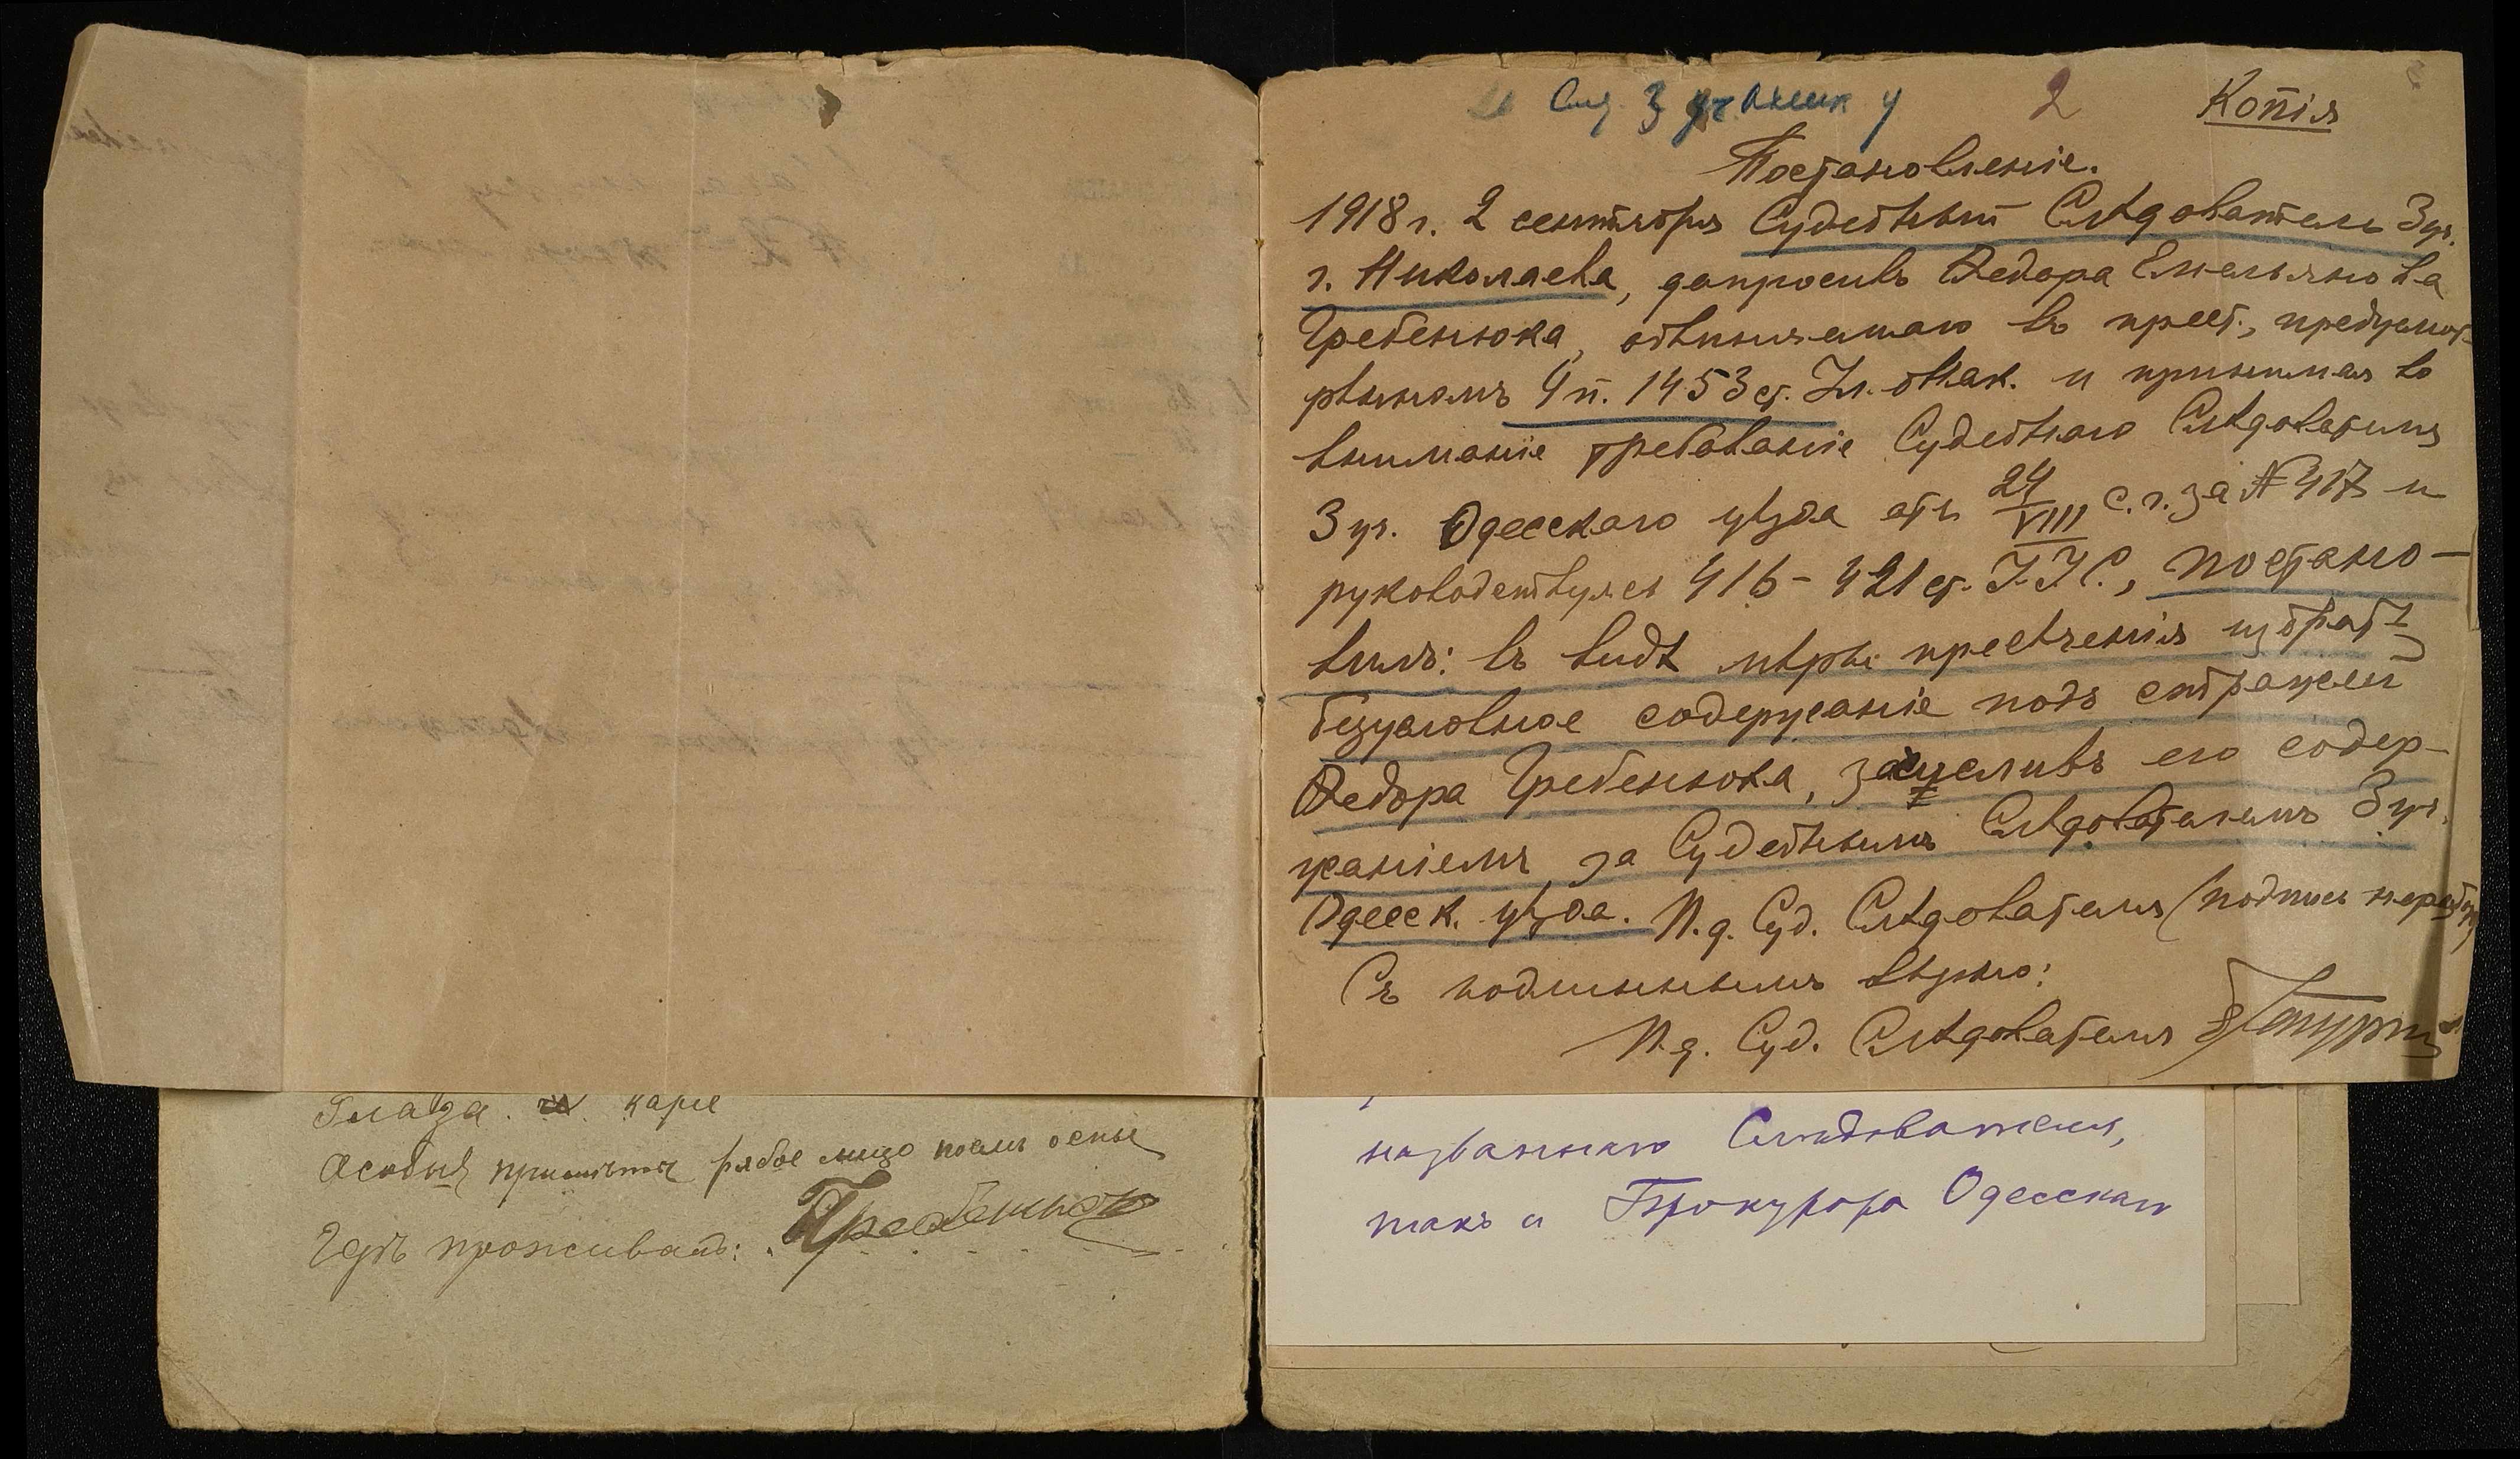 Сущ. 3 уч.
2
Копія
Постановленіе.
1918 г. 2 сентября Судебный Слѣдователь 3 уч.
г. Николаева, допросивъ Федора Емельянова
Гребенюка, обвиняемаго въ прест., предусмот-
рѣнномъ 4 п. 1453 ст. Ул. о Нак. и принимая во
вниманіе требованіе Судебнаго Слѣдователя
3 уч. Одесскаго уѣзда отъ 24/VIII с. г. за № 417 и
руководствуясь 416-421 ст. У.У.С., постано-
вилъ: въ видѣ мѣры пресѣченія избрать
безусловное содержаніе подъ стражей
Федора Гребенюка, зачисливъ его содер-
жаніемъ за Судебнымъ Слѣдователемъ 3 уч.
Одесск. уѣзда. И. д. Суд. Слѣдователя (подпись неразбор.)
Съ подлиннымъ вѣрно:
И. д. Суд. Слѣдователя
Глаза карие
Особыя примѣты рябое лицо послѣ оспы
Гдѣ проживалъ: Гребенюк
названнаго Слѣдователя,
такъ и Прокурора Одесскаго